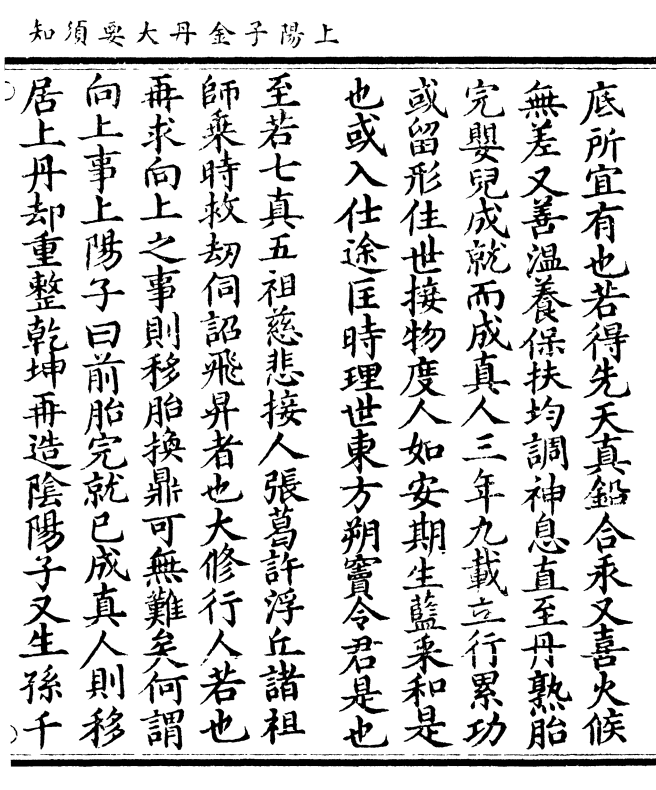 上陽子金丹大要須知
底所宜有也若得先天真鉛合汞又喜火候
無差又善溫養保扶均調神息直至丹熟胎
完嬰兒成就而成真人三年九載立行累功
或留形住世接物度人如安期生藍采和是
也或入仕途匡時理世東方朔竇令君是也
至若七真五祖慈悲接人張葛許浮丘諸祖
師乘時救劫伺詔飛昇者也大修行人若也
再求向上之事則移胎換鼎可無難矣何謂
向上事上陽子曰前胎完就已成真人則移
居上丹却重整乾坤再造陰陽子又生孫千